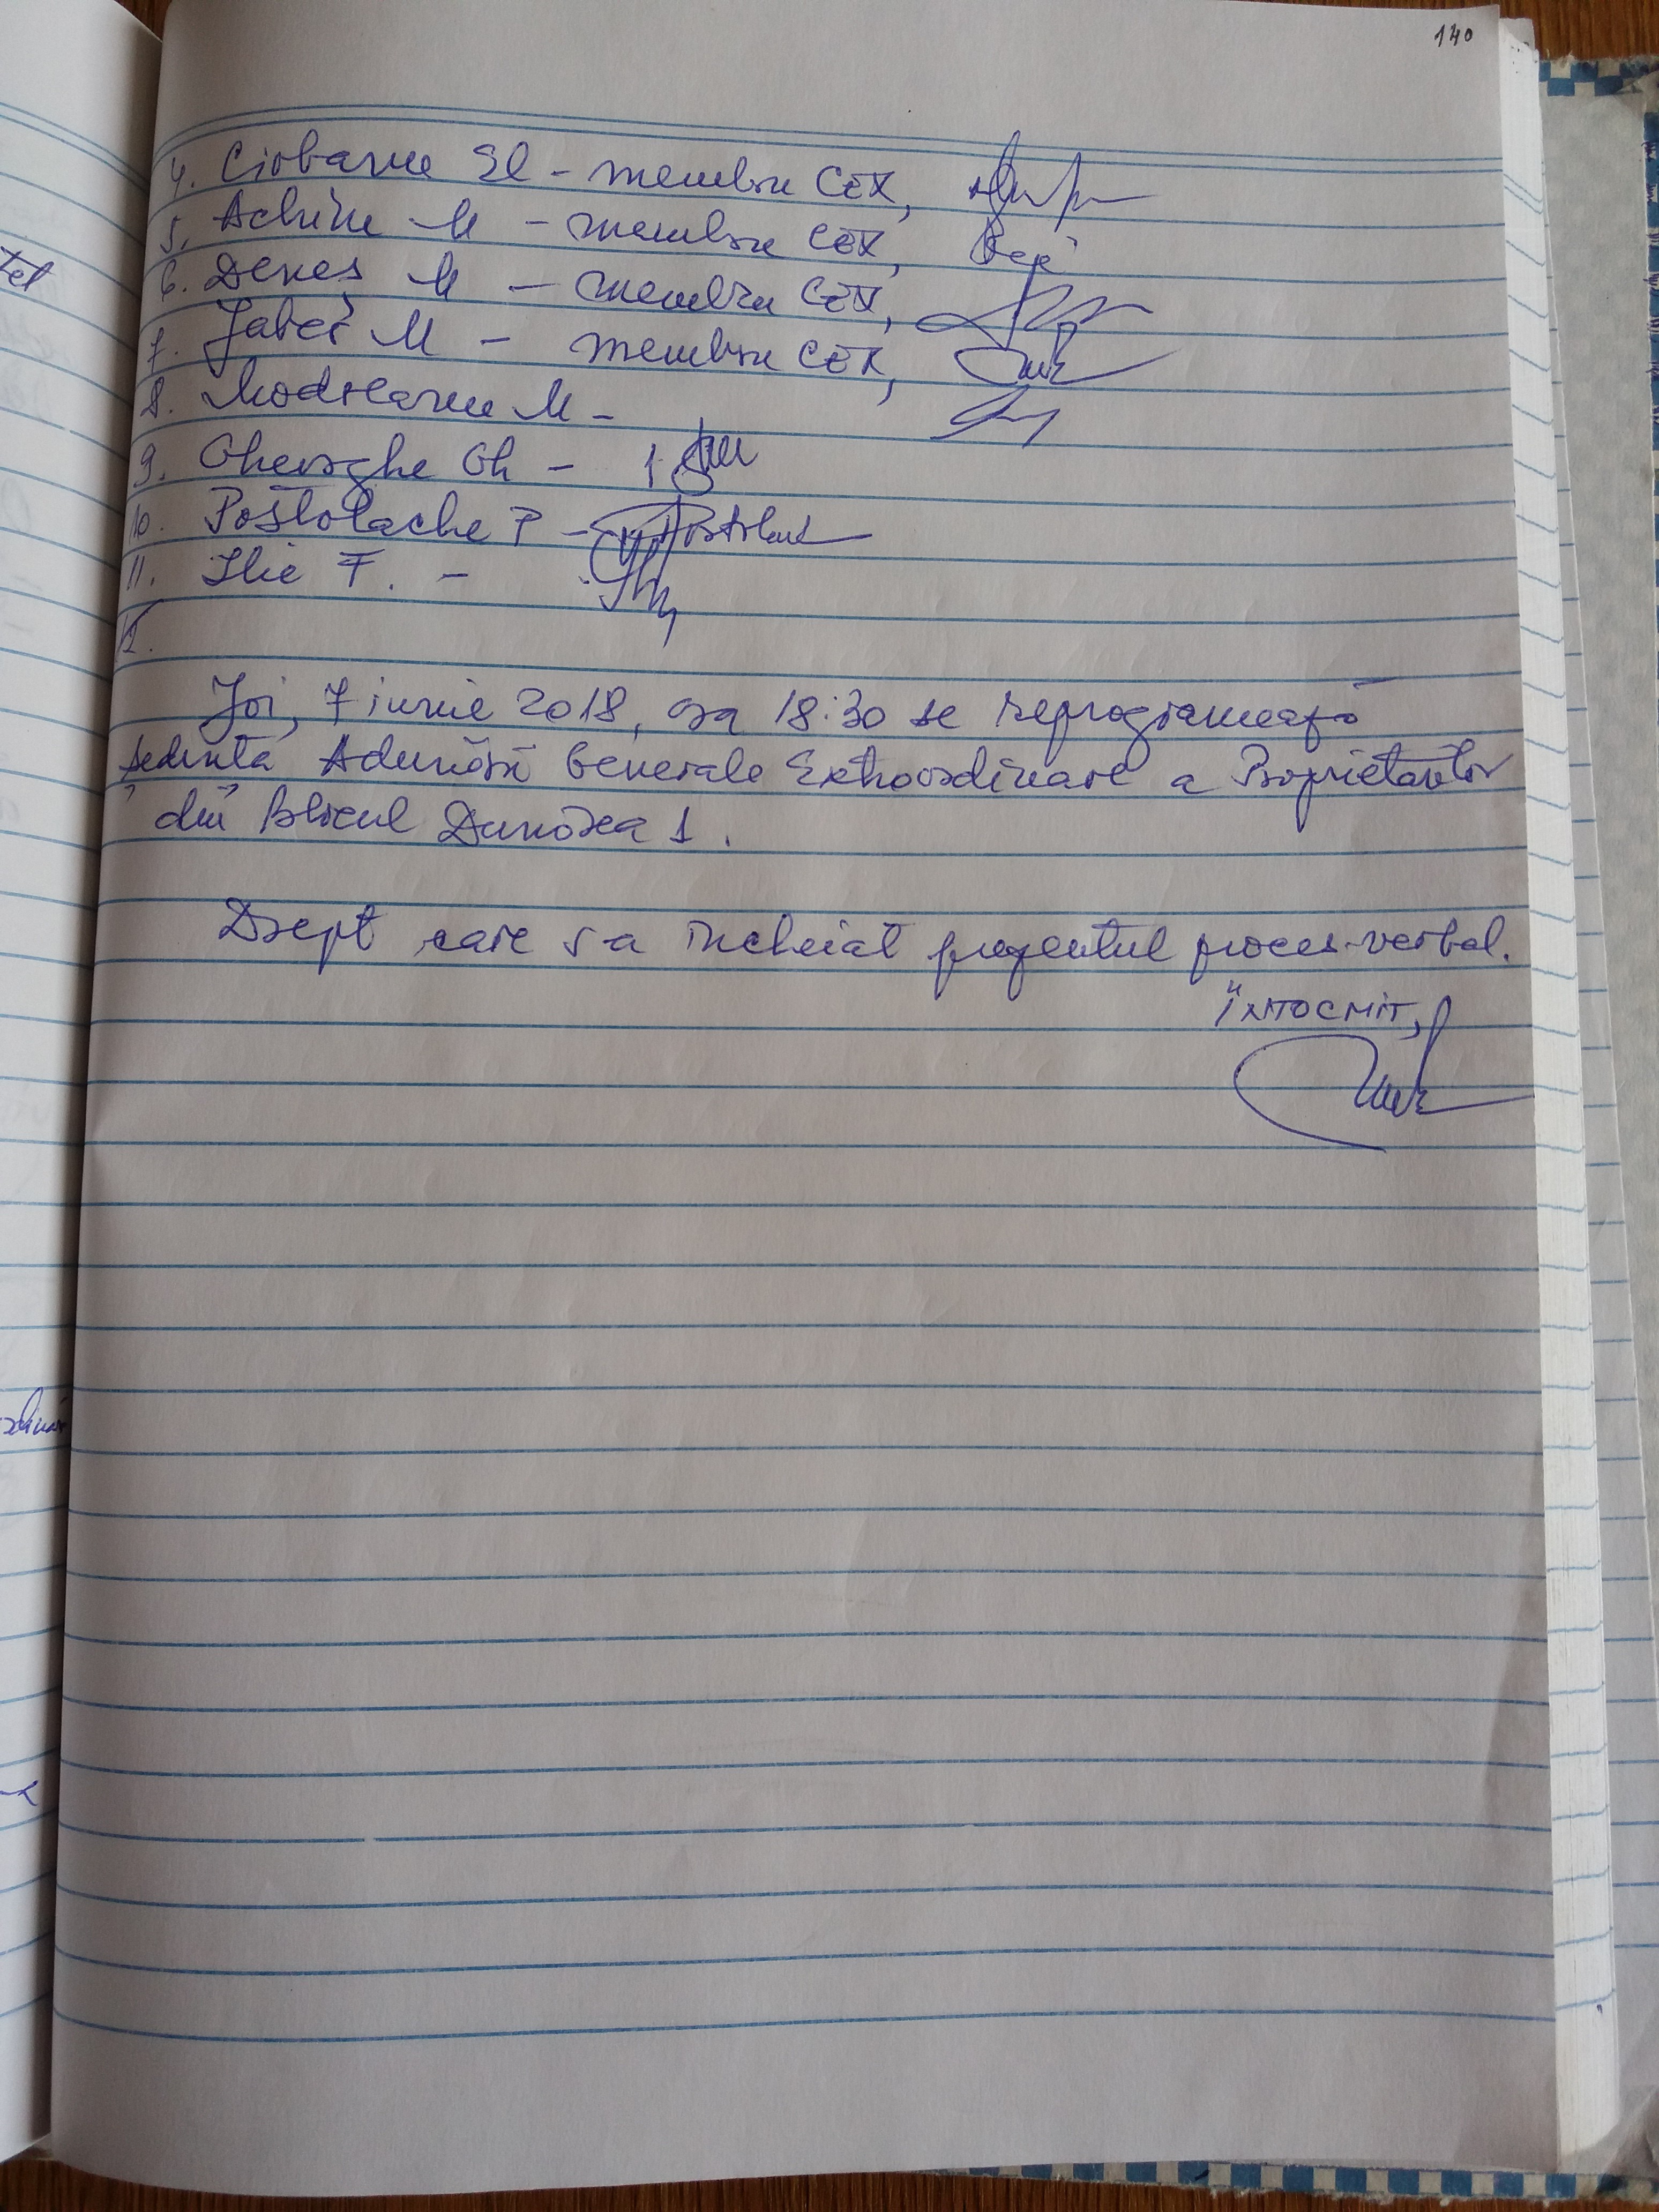 140
4. Ciobanu Sl - membru CEX,
5. Achim M - membru CEX,
6. Deneș M - membru CEX,
7. Jabeș M - membru CEX,
8. Modreanu M -
9. Gheorghe Gh -
10. Postolache P -
11. Ilie F. -
12.
Joi, 7 iunie 2018, ora 18:30 se reprogramează
ședința Adunării Generale Extraordinare a Proprietarilor
din Blocul Dunărea 1.
Drept care s-a încheiat prezentul proces-verbal.
ÎNTOCMIT,